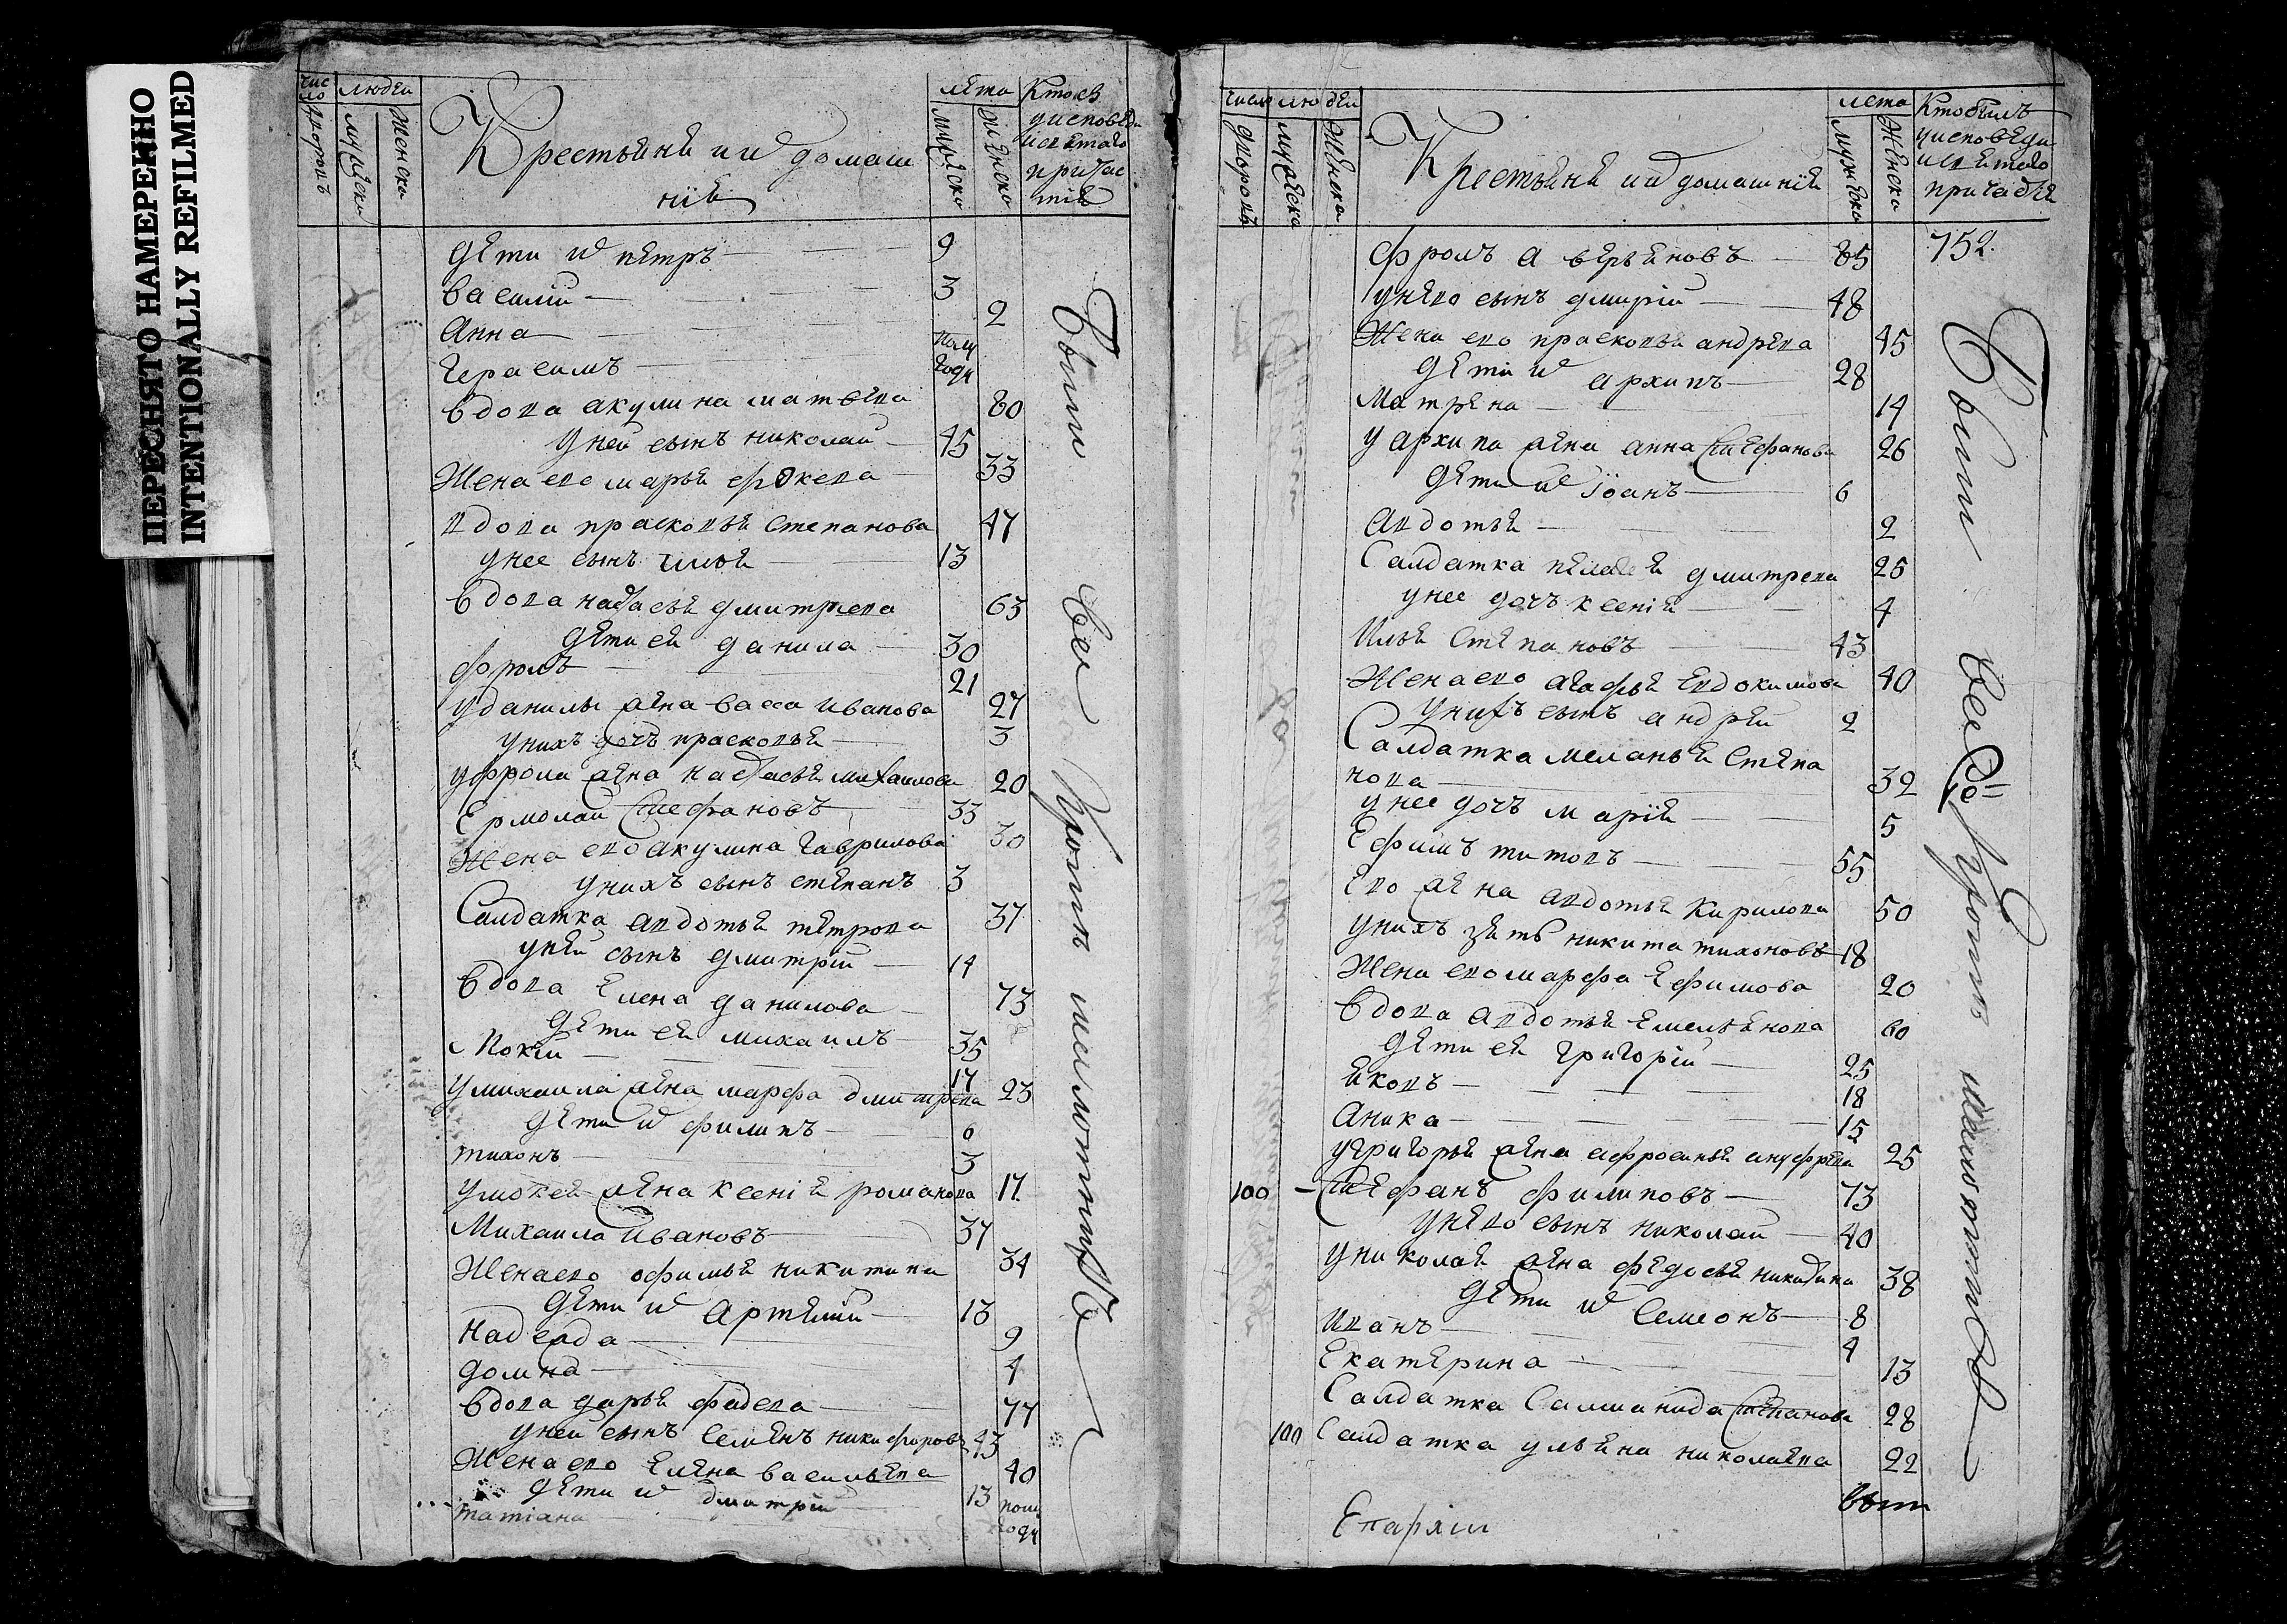 ПЕРЕСНЯТО НАМЕРЕННО
INTENTIONALLY REFILMED
число людей
дворовъ
мужеска
женска
Крестьяня и их домаш
нія
лета
мужеска
женска
дети их петръ 9
василій 3
Анна 2
герасимъ пол
года
вдова акулина матвева 80
у ней сынъ николай 45
Жена ево марья фокева 33
вдова прасковья степанова 47
у нее сынъ илья 13
вдова настасья дмитрева 63
дети ея данила 30
фролъ 21
у данилы жена васса иванова 27
у нихъ дочь прасковья 3
у фрола жена настасья михаилова 20
Ермолай стефановъ 33
Жена ево акулина гаврилова 30
у нихъ сынъ степанъ 3
Салдатка авдотья петрова 37
у ней сынъ дмитрій 14
вдова елена данилова 73
дети ея михаилъ 35
Мокей 17
у михаила жена марфа дмитрева 23
дети их филипъ 6
тихонъ 3
у мокея жена ксенія романова 17
Михаила Ивановъ 37
Жена ево офимья никитина 34
дети их Артемий 13
надежда 9
домна 4
вдова дарья фадева 77
у ней сынъ Семенъ никифоровъ 43
Жена ево елена васильева 40
дети их дмитрій 13
татіана пол
года
Были все кроме малолетных
число людей
дворовъ
мужеска
женска
Крестьяня и их домашнія
лета
мужеска
женска
Кто былъ
у исповеди
и святаго
причастія
752.
фролъ аверьяновъ 85
у него сынъ дмитрій 48
Жена ево прасковья андрева 45
дети их архипъ 28
Матрена 14
у архипа жена анна стефанова 26
дети их Іоанъ 6
Авдотья 2
Салдатка пелагея дмитрева 25
у нее дочь ксенія 4
Илья степановъ 43
Жена ево агафья евдокимова 40
у нихъ сынъ андрей 2
Салдатка меланья степа
нова 32
у нее дочь марія 5
Ефимъ титовъ 55
Ево жена авдотья кирилова 50
у нихъ зять никита тихоновъ 18
Жена ево марфа Ефимова 20
вдова авдотья Емельянова 60
дети ея григорій 25
яковъ 18
Аника 15
у григорья жена афросинья ануфрева 25
100 Стефанъ филиповъ 73
у него сынъ николай 40
у николая жена федосья никитина 38
дети их Семеонъ 8
Иванъ 4
Екатерина 13
Салдатка Саламанида степанова 28
100 Салдатка ульяна николаева 22
Были все кроме малолетных
Епархіи